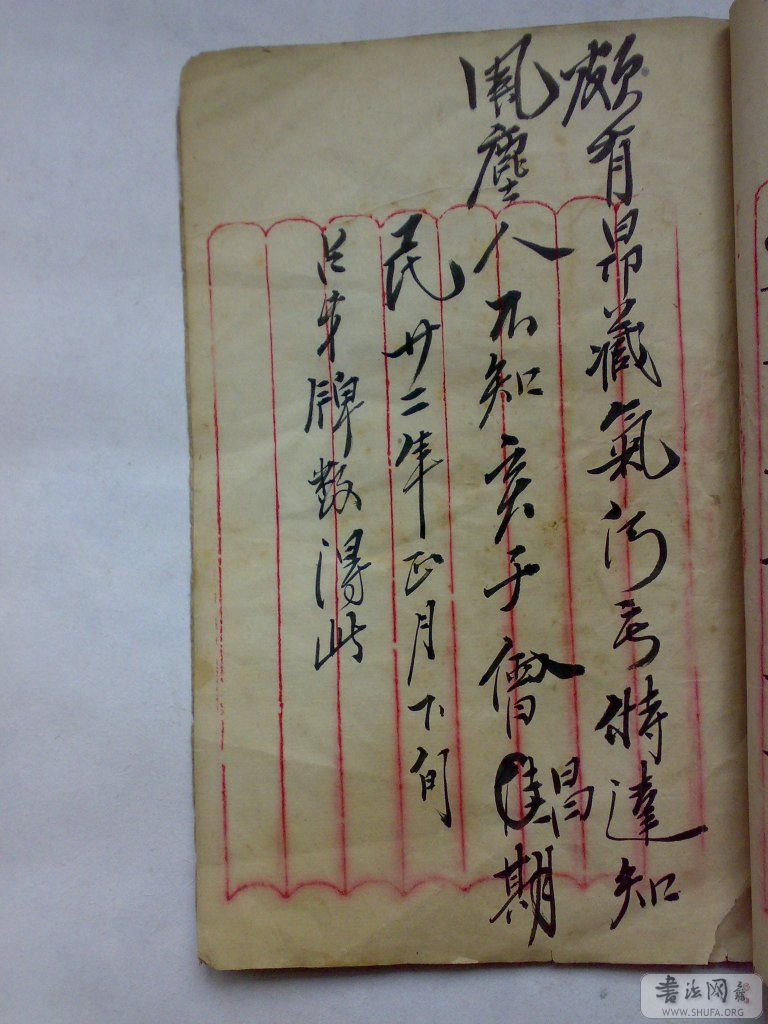 颇有昂藏氣何亏特達知
風塵人不知亥子會昌期
民廿二年正月下旬
占牙牌数得此
書法网
WWW.SHUFA.ORG